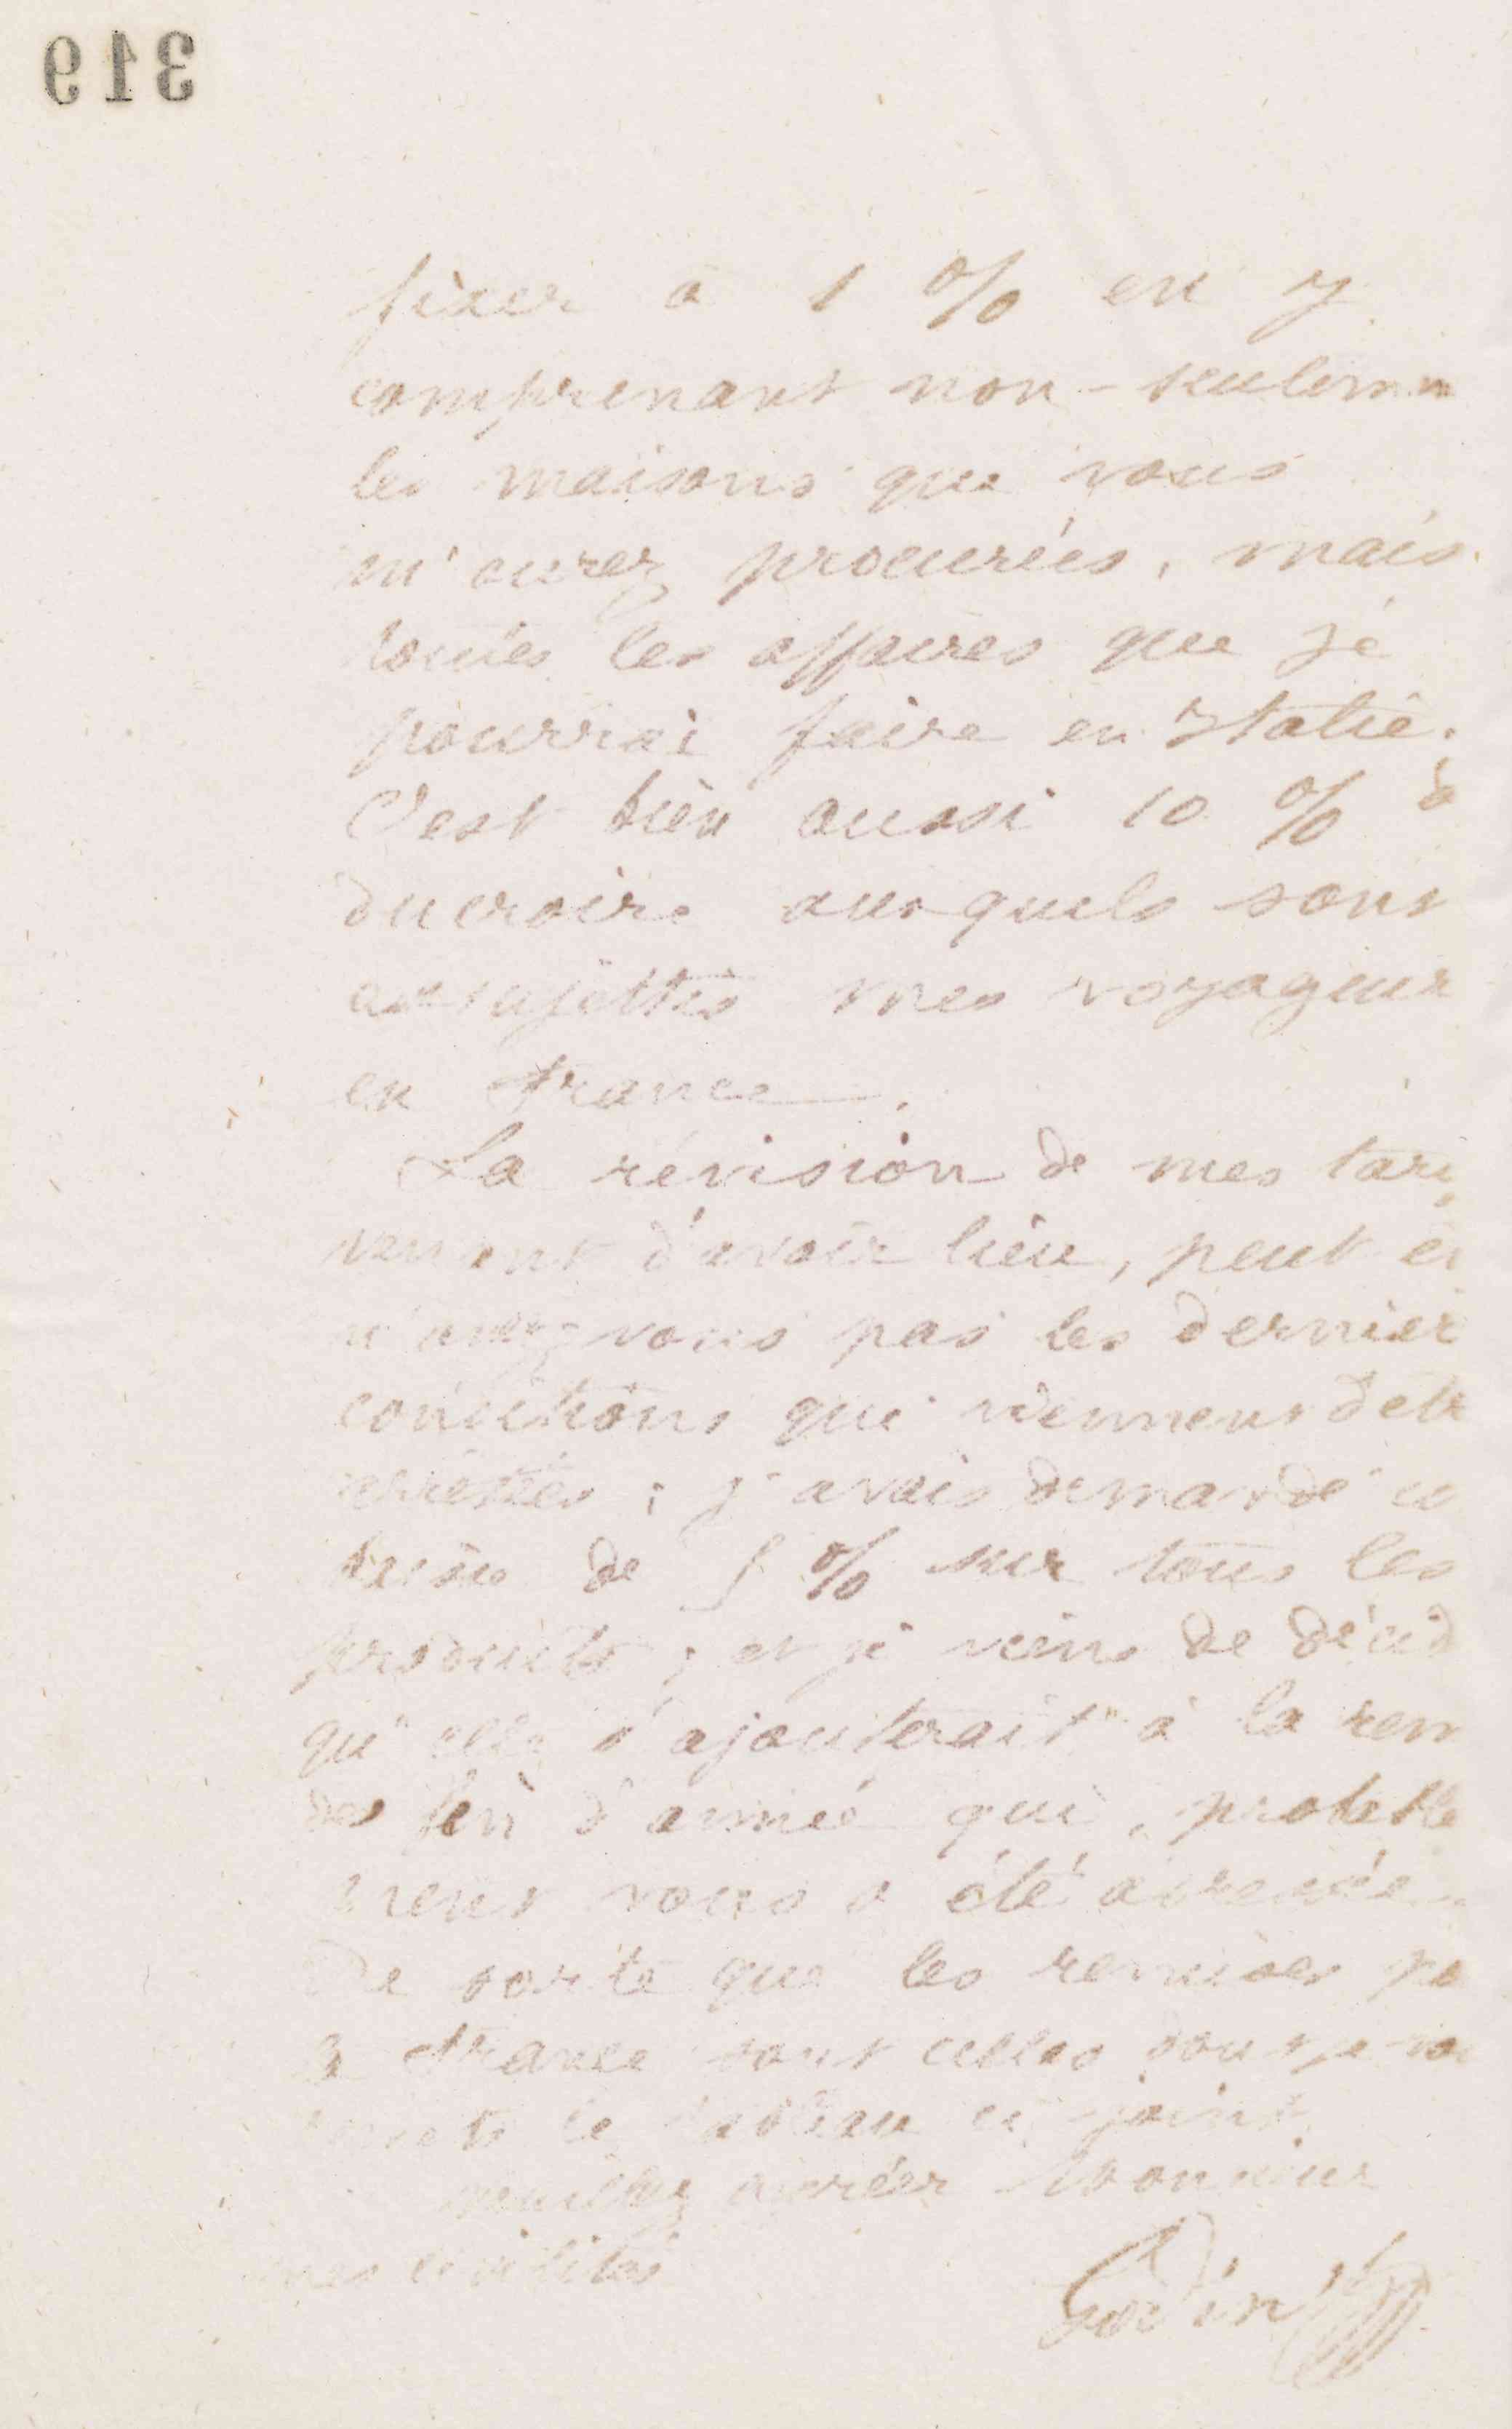 319
fixer à 1 % en y
comprenant non-seulem
les maisons que vous
m'aurez procurées, mais
toutes les affaires que je
pourrai faire en Italie.
C'est bien aussi 10 % de
ducroire auxquels sont
assujettis mes voyageurs
en France.
La révision de mes tari
vient d'avoir lieu, peut ê
n'avez-vous pas les dernièr
conditions qui viennent d'êtr
arrêtées ; j'avais demandé
de 5 % sur tous les
produits ; et je viens de décid
qu'elle s'ajouterait à la rem
de fin d'année qui, probable
ment vous a été
De sorte que les remises po
la France sont celles dont je vo
remets le tableau ci-joint.
Veuillez agréer Monsieur
mes civilités
Godin